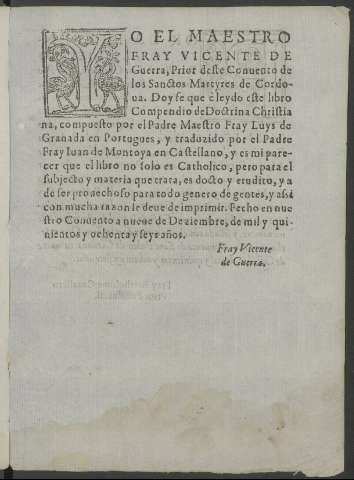 YO EL MAESTRO
FRAY VICENTE DE
Guerra, Prior deste Conuento de
los Sanctos Martyres de Cordo-
ua. Doy fe que è leydo este libro
Compendio de Doctrina Christia
na, compuesto por el Padre Maestro Fray Luys de
Granada en Portugues, y traduzido por el Padre
Fray Iuan de Montoya en Castellano, y es mi pare-
cer que el libro no solo es Catholico, pero para el
subjecto y materia que trata, es docto y erudito, y a
de ser prouechoso para todo genero de gentes, y assi
con mucha razon se deue de imprimir. Fecho en nue
stro Conuento a nueue de Deziembre, de mil y qui-
nientos y ochenta y seys años.
Fray Vicente
de Guerra.